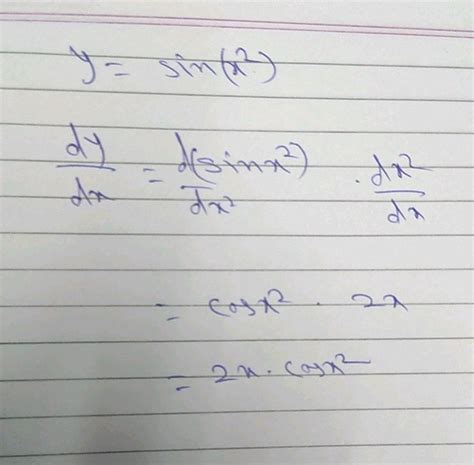 y = sin(x²)
dy/dx = d(sinx²)/dx² . dx²/dx
= cosx² . 2x
= 2x . cosx²